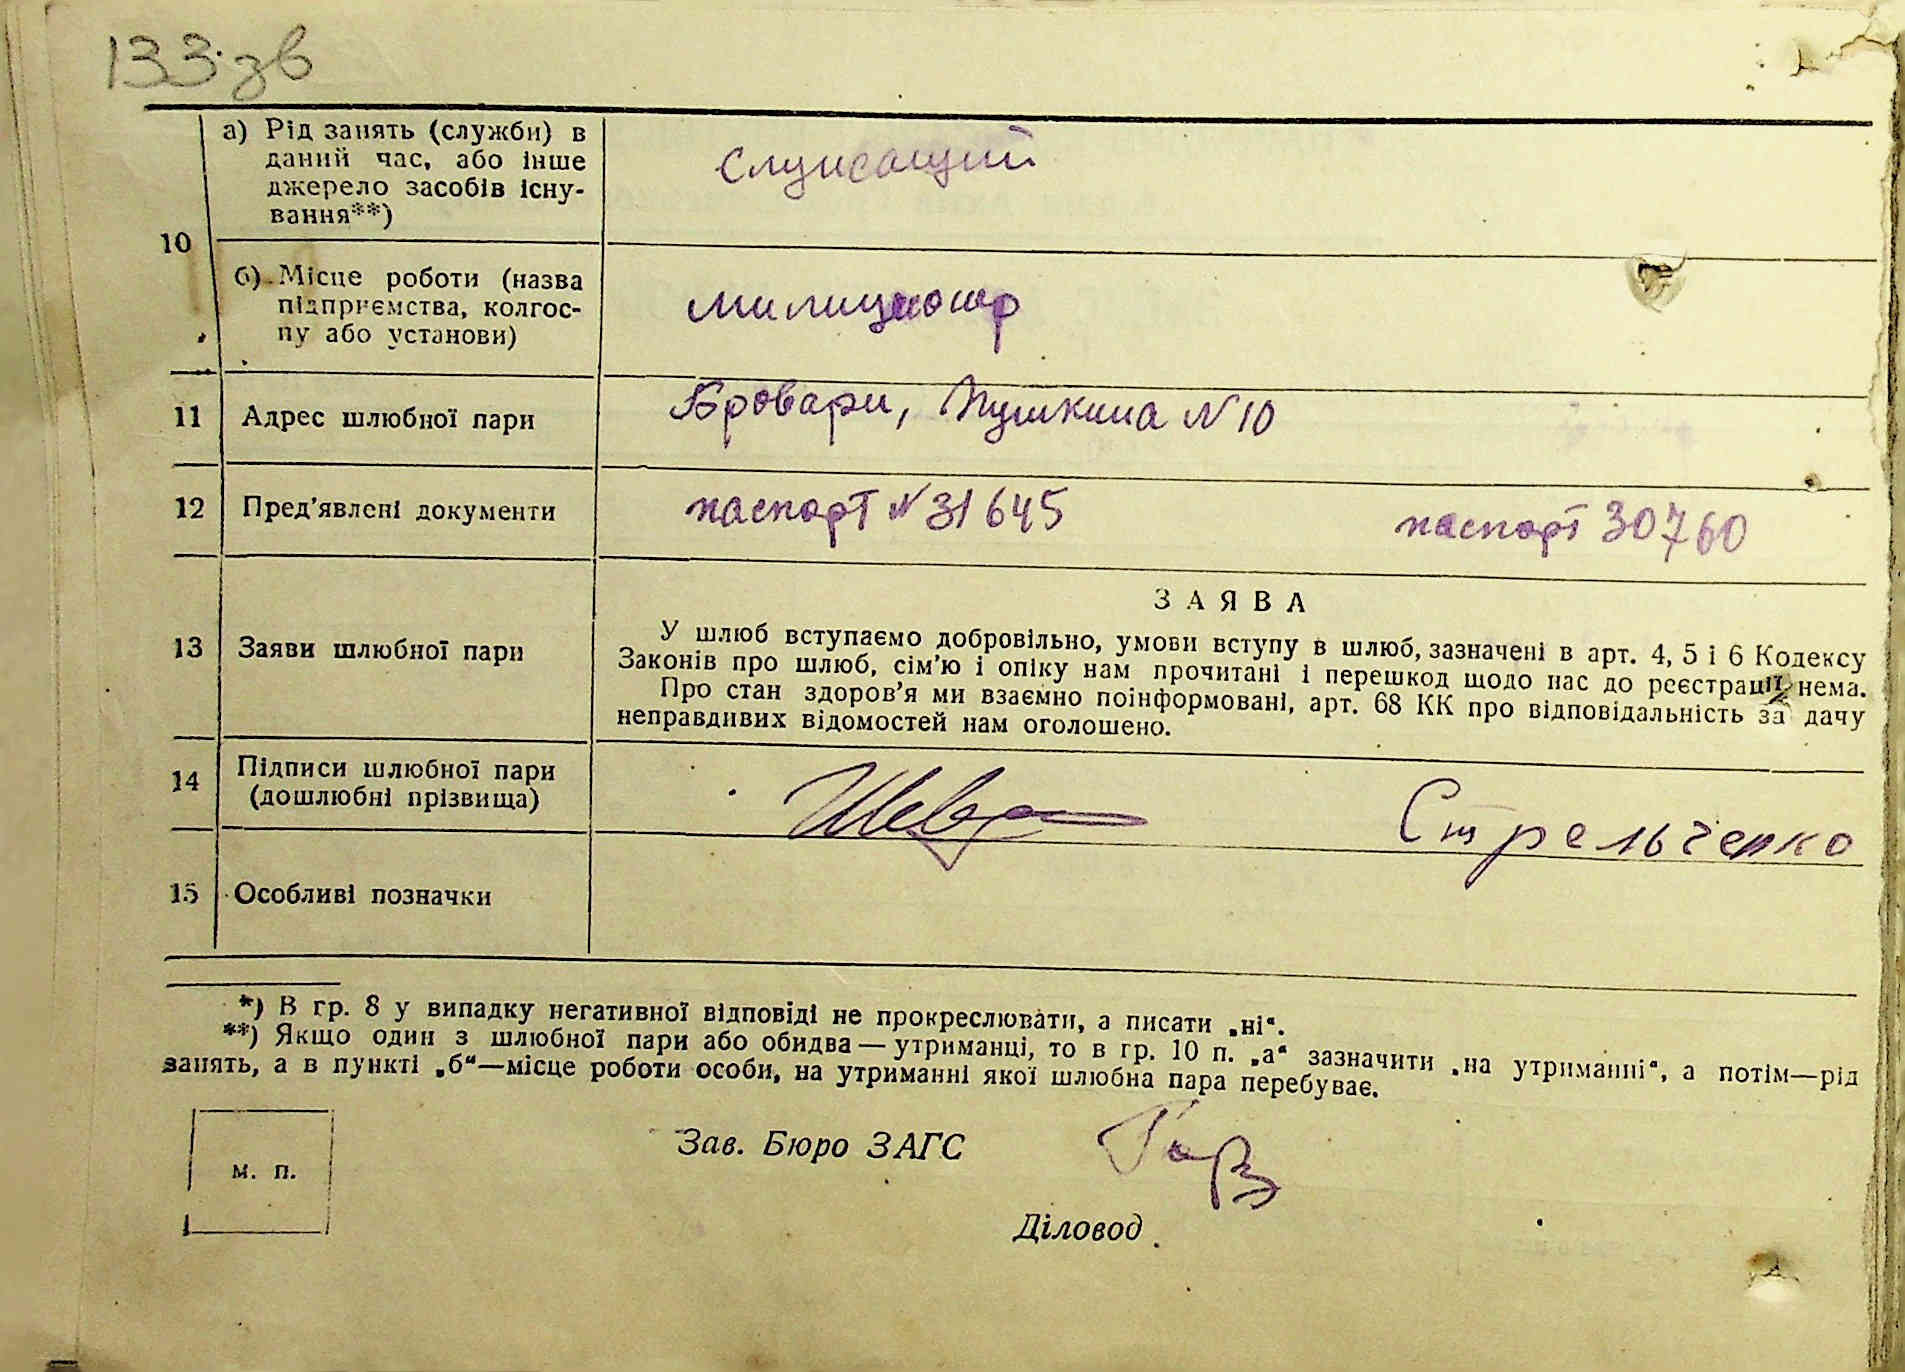 133 зв
10
а) Рід занять (служби) в
даний час, або інше
джерело засобів існу-
вання**)
Служащий
б) Місце роботи (назва
підприємства, колгос-
пу або установи)
милиционер
11 Адрес шлюбної пари
Бровари, Пушкина N 10
12 Пред'явлені документи
паспорт N 31645 паспорт 30760
13 Заяви шлюбної пари
ЗАЯВА
У шлюб вступаємо добровільно, умови вступу в шлюб, зазначені в арт. 4, 5 і 6 Кодексу
Законів про шлюб, сім'ю і опіку нам прочитані і перешкод щодо нас до реєстрації нема.
Про стан здоров'я ми взаємно поінформовані, арт. 68 КК про відповідальність за дачу
неправдивих відомостей нам оголошено.
14 Підписи шлюбної пари
(дошлюбні прізвища)
Стрельченко
15 Особливі позначки
*) В гр. 8 у випадку негативної відповіді не прокреслювати, а писати „ні“.
**) Якщо один з шлюбної пари або обидва — утриманці, то в гр. 10 п. „а“ зазначити „на утриманні“, а потім—рід
занять, а в пункті „б“—місце роботи особи, на утриманні якої шлюбна пара перебуває.
м. п.
Зав. Бюро ЗАГС
Діловод